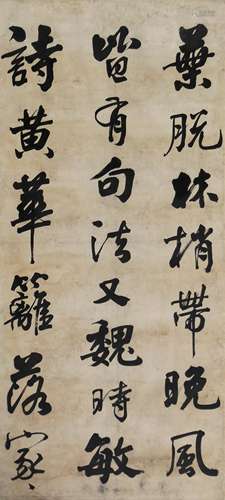 葉脫林梢帶晚風
皆有句法又魏時敏
詩黃華籬落家〻